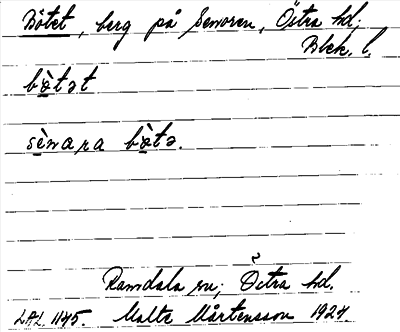 Bötet, berg på Senoren, Östra hd;
Blek. l.
bὸ̤tət
sὲnara bὸ̤tə.
Ramdala sn; Östra hd.
LAL 1145. Malte Mårtensson 1927